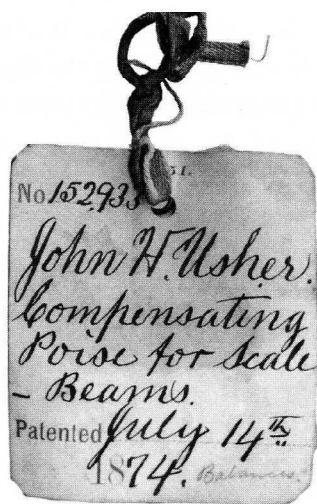 No 152,933
John H. Usher.
Compensating
Poise for Scale
- Beams.
Patented July 14th
1874. Balances.